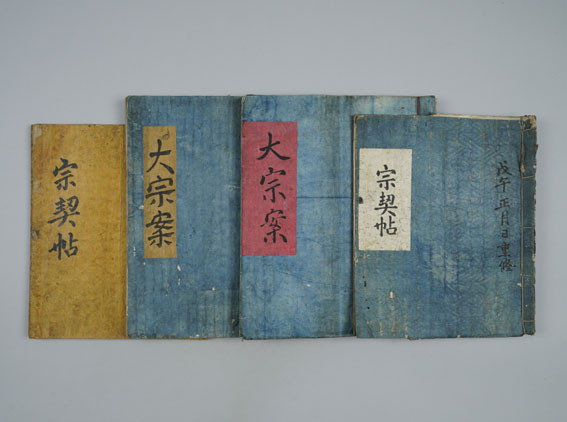 宗契帖
大宗案
大宗案
宗契帖
戊午 正月 日 重修